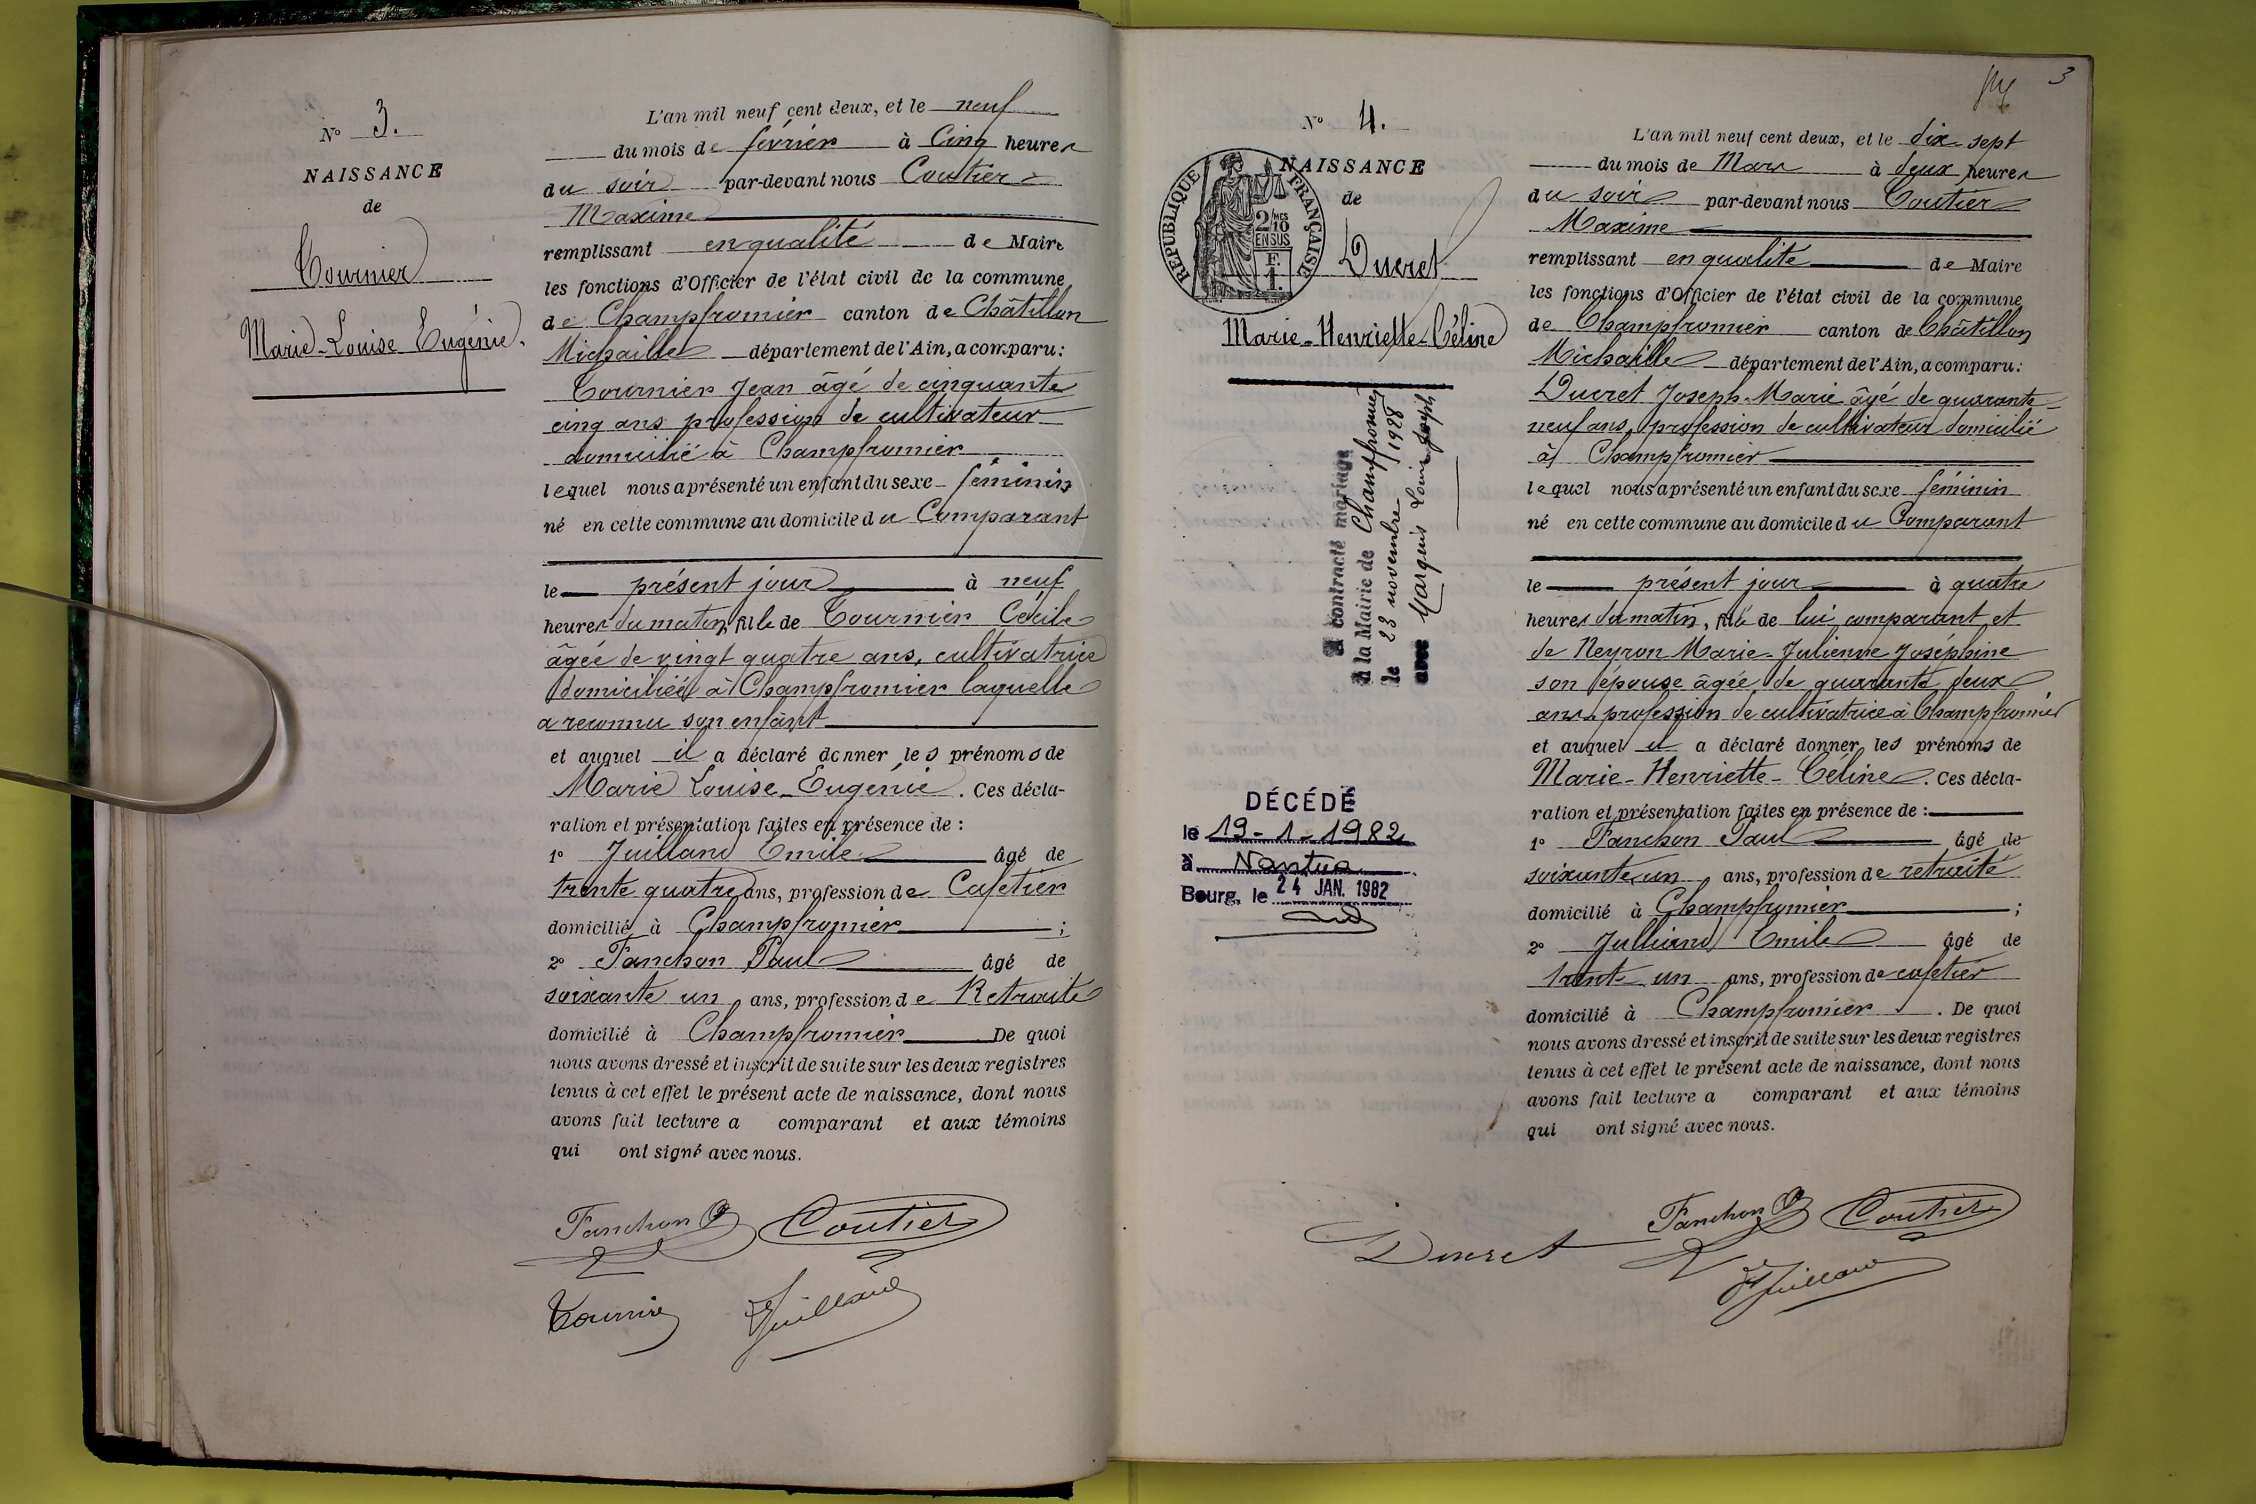 N° 3.
NAISSANCE
de
Tournier
Marie-Louise Eugénie.
L'an mil neuf cent deux, et le neuf
du mois de février à Cinq heures
du soir par-devant nous Coutier
Maxime
remplissant en qualité de Maire
les fonctions d'Officier de l'état civil de la commune
de Champfromier canton de Châtillon
Michaille département de l'Ain, a comparu:
Tournier Jean âgé de cinquante
cinq ans profession de cultivateur
domicilié à Champfromier
lequel nous a présenté un enfant du sexe féminin
né en cette commune au domicile du Comparant
le présent jour à neuf
heures du matin, fille de Tournier Cécile
âgée de vingt quatre ans, cultivatrice
domiciliée à Champfromier laquelle
a reconnu son enfant
et auquel il a déclaré donner les prénoms de
Marie Louise-Eugénie. Ces décla-
ration et présentation faites en présence de :
1° Juilland Emile âgé de
trente quatre ans, profession de Cafetier
domicilié à Champfromier ;
2° Fanchon Paul âgé de
soixante un ans, profession de Retraité
domicilié à Champfromier De quoi
nous avons dressé et inscrit de suite sur les deux registres
tenus à cet effet le présent acte de naissance, dont nous
avons fait lecture a comparant et aux témoins
qui ont signé avec nous.
Fanchon P Coutier
Tournier Juilland
3
N° 4.
NAISSANCE
de
RÉPUBLIQUE FRANÇAISE
2/10 MES
EN SUS
F.
1.
Ducret
Marie-Henriette-Céline
A contracté mariage
à la Mairie de Champfromier
le 23 novembre 1928
avec Marquis Louis Joseph
DÉCÉDÉ
le 19-1-1982
à Nantua
Bourg, le 24 JAN. 1982
L'an mil neuf cent deux, et le dix-sept
du mois de Mars à deux heures
du soir par-devant nous Coutier
Maxime
remplissant en qualité de Maire
les fonctions d'Officier de l'état civil de la commune
de Champfromier canton de Châtillon
Michaille département de l'Ain, a comparu:
Ducret Joseph-Marie âgé de quarante-
neuf ans, profession de cultivateur domicilié
à Champfromier
lequel nous a présenté un enfant du sexe féminin
né en cette commune au domicile du Comparant
le présent jour à quatre
heures du matin, fille de lui comparant et
de Neyron Marie-Julienne Joséphine
son épouse âgée de quarante deux
ans profession de cultivatrice à Champfromier
et auquel il a déclaré donner les prénoms de
Marie-Henriette-Céline. Ces décla-
ration et présentation faites en présence de :
1° Fanchon Paul âgé de
soixante un ans, profession de retraité
domicilié à Champfromier ;
2° Julliand Emile âgé de
trente un ans, profession de cafetier
domicilié à Champfromier. De quoi
nous avons dressé et inscrit de suite sur les deux registres
tenus à cet effet le présent acte de naissance, dont nous
avons fait lecture a comparant et aux témoins
qui ont signé avec nous.
Ducret Fanchon P Coutier
Juilland